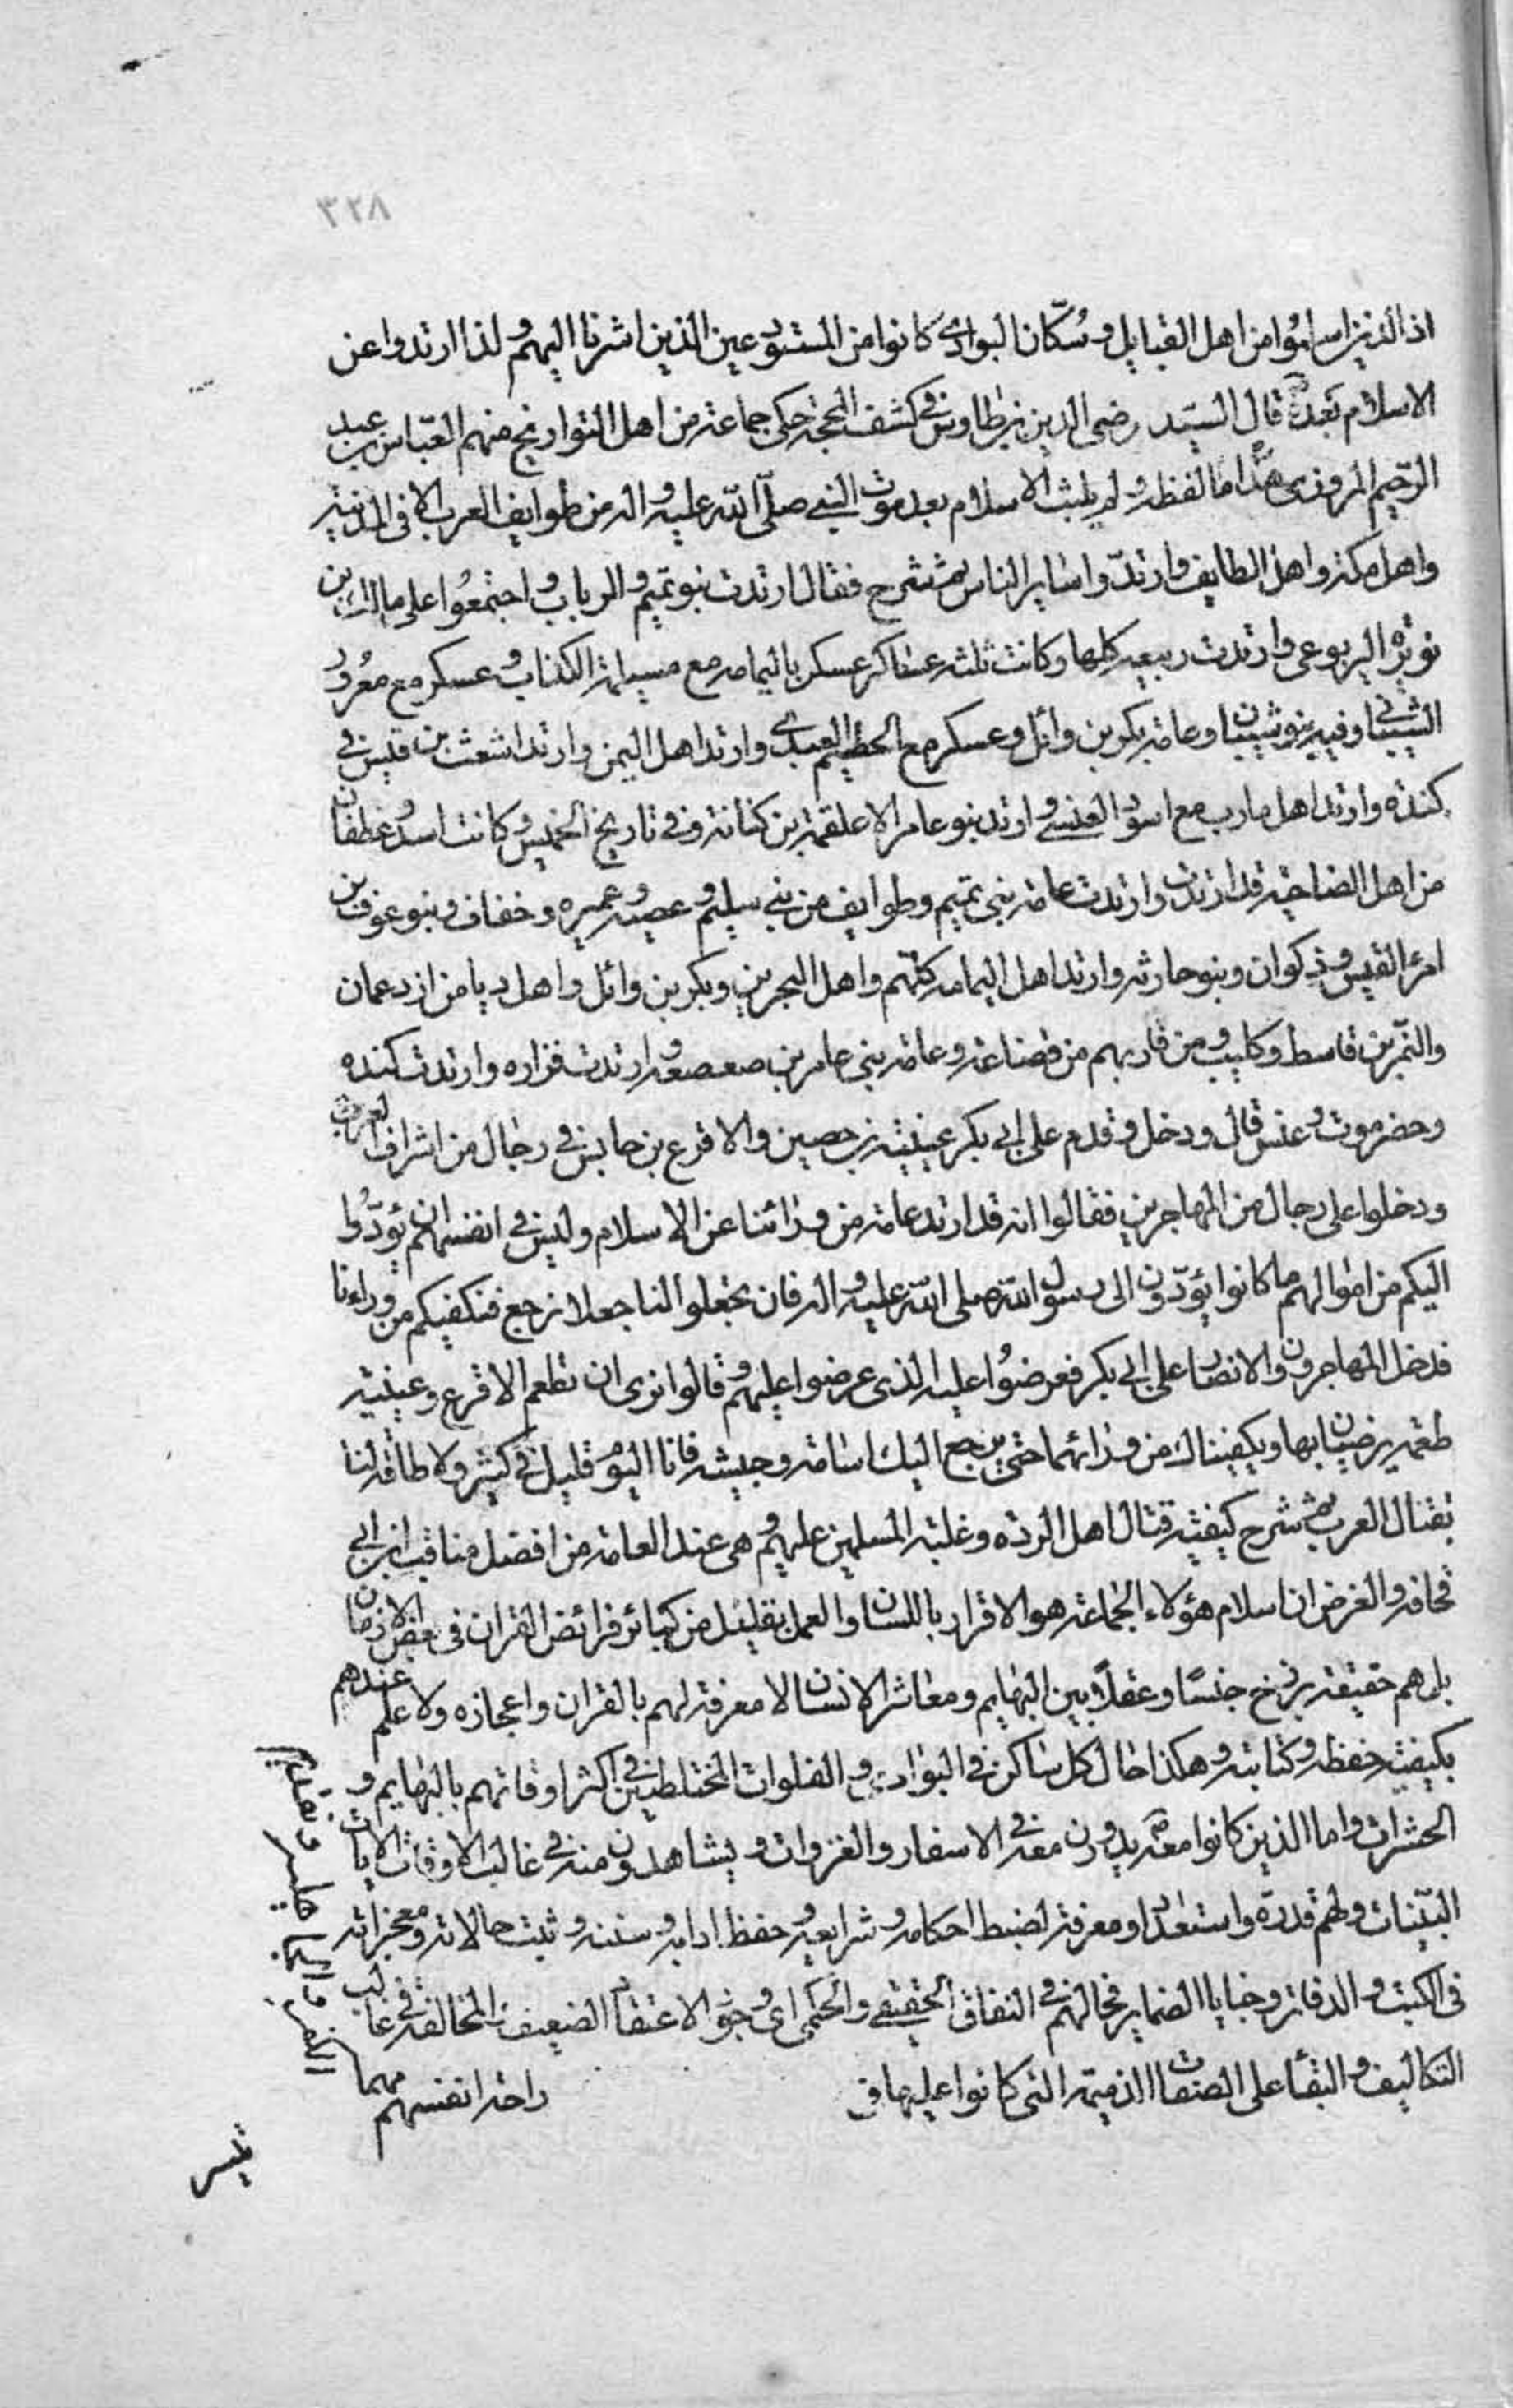 ٣٢٨
اذ الذين اسلموا من اهل القبايل وسُكّان البوادى كانوا من المستودعين الذين اشرنا اليهم ولذا ارتدوا عن
الاسلام بعده ص قال السيّد رضى الدين بن طاوس فى كشف المحجة حكى جماعة من اهل التواريخ منهم العبّاس بن عبد
الرّحيم المروزى هذا ما لفظه ولم يلبث الاسلام بعد موت النبى صلّى الله عليه واله من طوايف العرب الا فى المدنيه
واهل مكه واهل الطايف وارتدّوا ساير الناس ثم شرح فقال ارتدت بنو تميم والرباب واجتمعُوا على مالك بن
نويره اليربوعى وارتدت ربيعه كلها وكانت ثلثه عساكر عسكر باليمامه مع مسيلمة الكذاب وعسكر مع معُرور
الشيبانى وفيه بنو شيبان وعامة بكر بن وائل وعسكر مع الحطيم العبدى وارتد اهل اليمن وارتد اشعث بن قيس فى
كنده وارتد اهل مارب مع اسود العنسى وارتد بنو عامر الا علقمة بن كنانة وفى تاريخ الخميس وكانت اسد وغطفان
من اهل الضاحية قد ارتدت وارتدت عامة بنى تميم وطوايف من بنى سليم وعصيه وعميره وخفاف وبنو عوف بن
امرء القيس وذكوان وبنو حارثه وارتد اهل اليمامه كلّهم واهل البحرين وبكر بن وائل واهل دبا من ازد عمان
والنّمر بن قاسط وكليب ومن قاربهم من قضاعة وعامة بنى عامر بن صعصعه وارتدت فزاره وارتدت كنده
وحضرموت وعنس قال ودخل وقدم على ابى بكر عيينه بن حصين والاقرع بن حابس فى رجال من اشراف العرب
ودخلوا على رجال من المهاجرين فقالوا انه قد ارتد عامة من ورائنا عن الاسلام وليس فى انفسهم ان يؤدّوا
اليكم من اموالهم ما كانوا يؤدّون الى رسول الله صلى الله عليه واله فان تجعلوا لنا جعلا نرجع فنكفيكم من وراءنا
فدخل المهاجرون والانصار على ابى بكر فعرضوُا عليه الذى عرضوا عليهم وقالوا نرى ان تطعم الاقرع وعيينه
طعمه يرضيان بها ويكفيناك من ورائهما حتى يرجع اليك اسامة وجيشه فانا اليوم قليل فى كثير ولا طاقة لنا
بقتال العرب ثم شرح كيفيه قتال اهل الرده وغلبة المسلمين عليهم وهى عند العامة من افضل مناقب ابن ابى
قحافه والغرض ان اسلام هؤلاء الجماعة هو الاقرار باللسان والعمل بقليل من كبائر فرائض القران فى بعض الازمان
بل هم حقيقة برزخ جنسًا وعقلًا بين البهايم ومعاشر الانسان لا معرفة لهم بالقران واعجازه ولا علم عندهم
بكيفية حفظه وكتابته وهكذا حال كل ساكن فى البوادى والفلوات المختلطين فى اكثر اوقاتهم بالبهايم و
الحشرات واما الذين كانوا معه ص يدورون معه فى الاسفار والغزوات ويشاهدون منه فى غالب الاوقات الايات
البيّنات ولهم قدرة واستعداد ومعرفة لضبط احكامه وشرايعه وحفظ ادابه وسننه وثبت حالاته ومعجزاته
فى الكتب والدفاتر وخبايا الضماير فحالهم فى النفاق الحقيقى والحكمى اى وجود الاعتقاد الضعيف والمخالفة فى غالب
التكاليف والبقأ على الصفات الذميمة التى كانوا عليها فى
راحة انفسهم مهما
تيسر